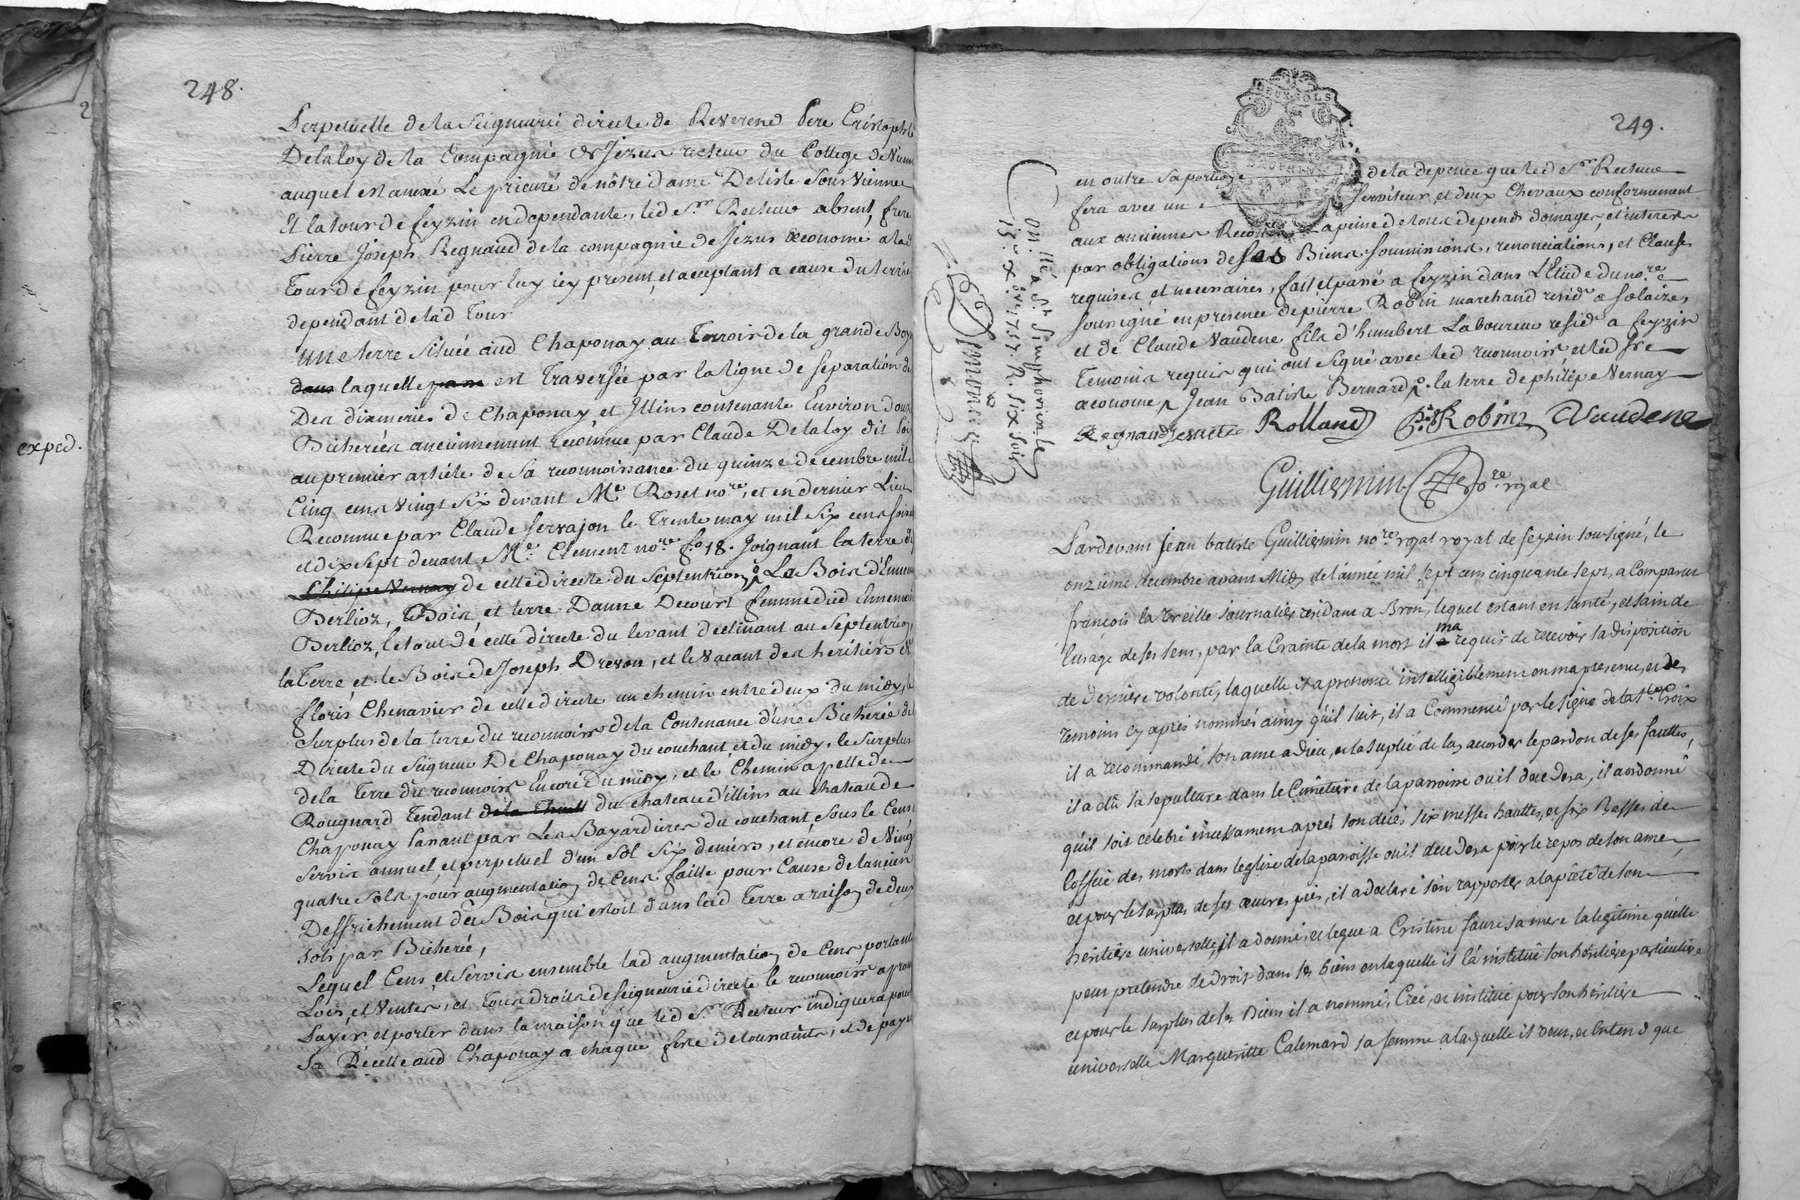 248.
Perpetuelle de la Seigneurie directe de Reverend Pere Cristophle
Delaloy de la Compagnie de Jezus recteur du College de Vienne
auquel est anexé Le prieuré de nôtre dame Delisle sous Vienne
Et la tour de feyzin en dependante, led Sr Recteur absent, frere
Pierre Joseph Regnaud de la compagnie de Jezus œconome a lad
Tour de feyzin pour luy icy present, et aceptant a cause du terrier
dependant de lad Tour
Une terre située aud Chaponay au Terroir de la grande
laquelle est Traversée par la ligne de separation de
Des dixmeries de Chaponay et Illins contenante Environ douze
Bicherées anciennement reconnue par Claude Delaloy dit
au premier article de sa reconnoissance du quinze decembre mil
Cinq cens vingt six devant Me Roset nore, et en dernier Lieu
Reconnue par Claude Servajon le Trente may mil six cens soixante
et dix sept devant Me Clement nore fo 18. Joignant la terre de
Philipe Vernay de cette directe du septentrion, Le Bois d'Ennemond
Berlioz, Bois, et terre Danne Decourt femme dud Ennemond
Berlioz, le tout de cette directe du levant declinant au septentrion,
la Terre, et le Bois de Joseph Drevon, et le vacant des héritiers de
floris Chenavier de cette directe un chemin entre deux du midy, le
Surplus de la terre du reconnoiss de la Contenance d'une Bicherée de la
Directe du Seigneur De Chaponay du couchant, et du midy, le surplus
de la Terre du reconnoiss Encore du midy, et le Chemin apellé de
Rougnard Tendant du chateau d'illins au chateau de
Chaponay Passant par Les Bayardieres du couchant sous le Cens
Servis annuel et perpetuel d'un sol six deniers, et encore de Vingt
quatre sols pour augmentation de Cens faitte pour Cause de lancien
Deffrichement des Bois qui estoit dans lad Terre a raison de deux
sols par Bicherée,
Lequel Cens, et Servis ensemble lad augmentation de Cens portant
Lods, et Ventes, et Tous droits de seigneurie directe le reconnoiss a promis
Payer, et porter dans la maison que led Sr Recteur indiquera pour
Sa Recette aud Chaponay a chaque feste de toussaints, et de payer
exped.
249.
en outre sa portion de la depence que led Sr Recteur
fera avec un serviteur et deux Chevaux conformement
aux anciennes a peine de tous depends domages, et interests
par obligations de ses Biens soumissions, renonciations, et Clauses
requises et necessaires, fait et passé a feyzin dans L'Etude du nore
soussigné en presence de pierre Robin marchand resid a solaizes
et de Claude Vaudene fils d'humbert Laboureur resid a feyzin
Temoins requis qui ont signé avec led reconnoiss et led fre
œconome, Jean Batiste Bernard, la terre de philipe Vernay
Regnaud Jesuite Rolland Pre Robin Vaudene
Guilliermin nore royal
Pardevant Jean batiste Guilliermin nore royal royal de feyzin soussigné, le
onzieme decembre avant Midy de l'année mil sept cens cinquante sept, a Comparu
françois la treille Journalier residant a Bron, lequel estant en santé, et sain de
l'usage de ses sens, par la Crainte de la mort il ma requis de recevoir sa disposition
de derniere volonté, laquelle il a prononcé intelligiblement en ma presence, et des
temoins cy après nommés ainsy qu'il suit, il a Commencé par le signe de la ste Croix
il a recommandé son ame a Dieu, et la suplié de luy acorder le pardon de ses fauttes,
il a élu sa sepulture dans le Cimetiere de la paroisse ou il decedera, il a ordonné
qu'il soit celebré incessament après son décés six messes hauttes, et six Basses de
l'office des morts dans leglise de la paroisse ou il decedera pour le repos de son ame,
et pour le surplus de ses œuvres pies, il a declaré s'en rapporter a la pieté de son
héritiere universelle, il a donné, et legué a Cristine faure sa mere la legitime qu'elle
peut pretendre de droit dans ses biens en laquelle il l'a institué son héritiere particuliere
et pour le surplus de ses Biens il a nommé, Créé, et institué pour son héritiere
universelle Margueritte Calemard sa femme a laquelle il veut, et Entend que